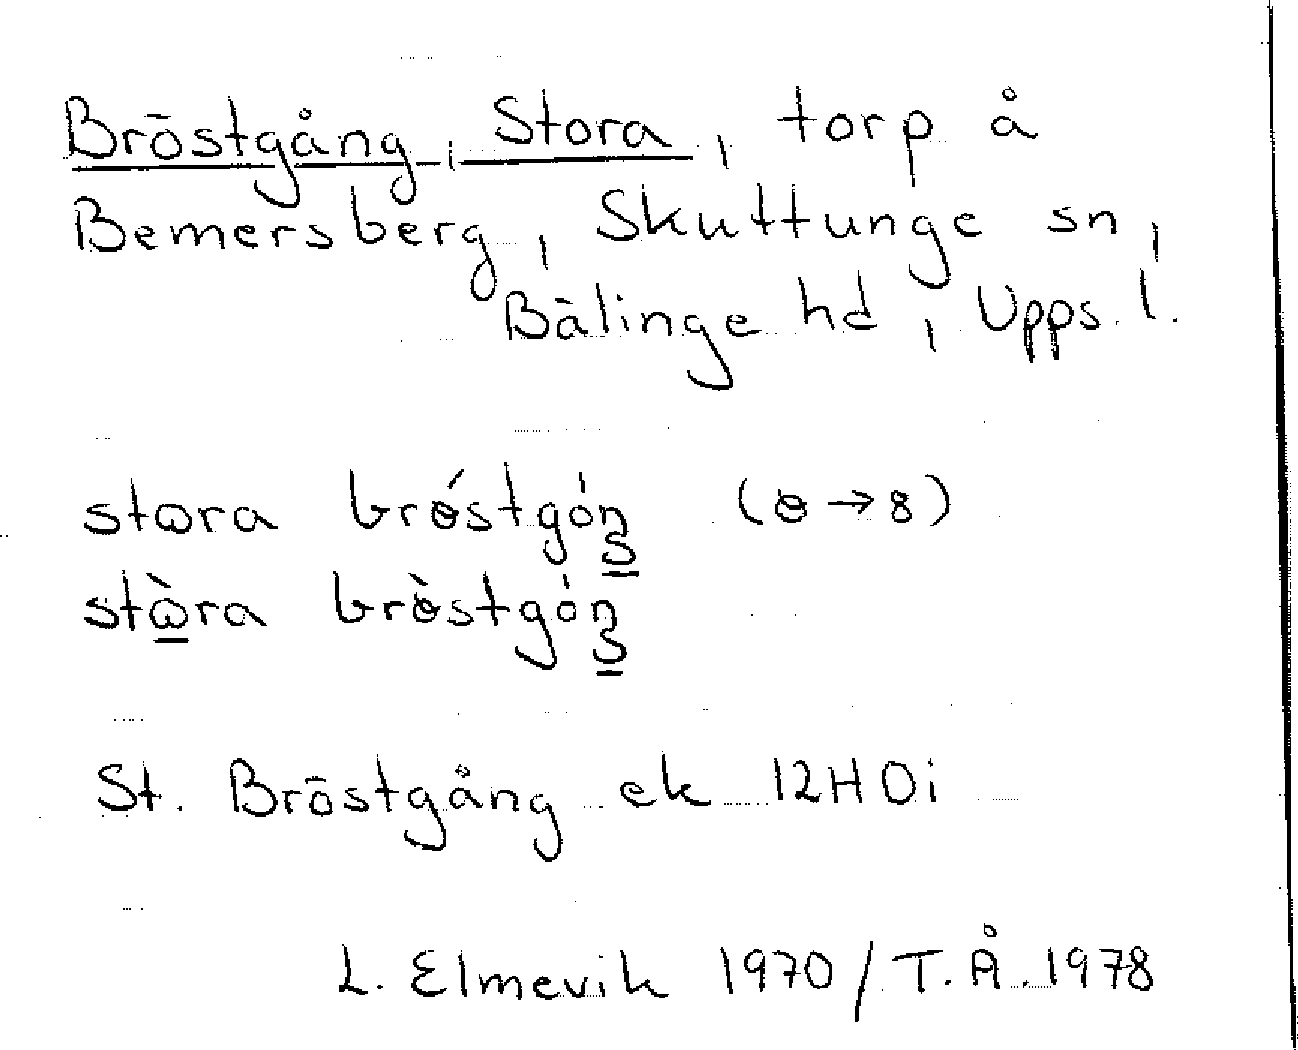 Bröstgång, Stora, torp å
Bemersberg, Skuttunge sn,
Bälinge hd, Upps. l.
stɷra brɵ́stgóŋ (ɵ → 8)
stɷ̀ra brɵ̀stgóŋ
St. Bröstgång ek 12H 0i
L. Elmevik 1970 / T.Å. 1978